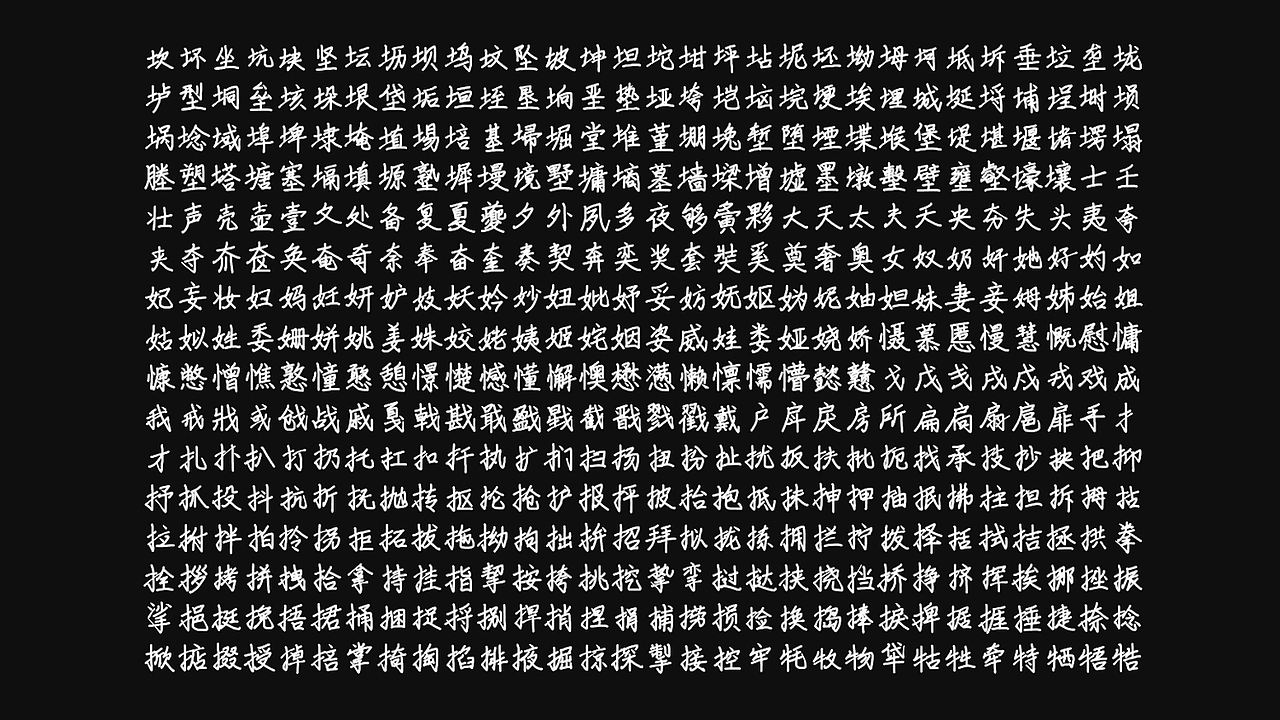 坎坏坐坑块坚坛坜坝坞坟坠坡坤坦坨坩坪坫坭坯坳坶坷坻坼垂垃垄垅
垆型垌垒垓垛垠垡垢垣垤垦垧垩垫垭垮垲垴垸埂埃埋城埏埒埔埕埘埙
埚埝域埠埤埭埯埴埸培基埽堀堂堆堇堋堍堑堕堙堞堠堡堤堪堰堵塄塌
塍塑塔塘塞塥填塬塾墀墁境墅墉墒墓墙墚增墟墨墩墼壁壅壑壕壤士壬
壮声壳壶壹夂处备复夏夔夕外夙多夜够夤夥大天太夫夭央夯失头夷夸
夹夺夼奁奂奄奇奈奉奋奎奏契奔奕奖套奘奚奠奢奥女奴奶奸她好妁如
妃妄妆妇妈妊妍妒妓妖妗妙妞妣妤妥妨妩妪妫妮妯妲妹妻妾姆姊始姐
姑姒姓委姗姘姚姜姝姣姥姨姬姹姻姿威娃娄娅娆娇慑慕慝慢慧慨慰慵
慷憋憎憔憝憧憨憩憬憷憾懂懈懊懋懑懒懔懦懵懿戆戈戊戋戌戍戎戏成
我戒戕或戗战戚戛戟戡戢戥戮戬截戳戴户戽戾房所扁扃扇扈扉手扌
才扎扑扒打扔托扛扣扦执扩扪扫扬扭扮扯扰扳扶批扼找承技抄抉把抑
抒抓投抖抗折抚抛抟抠抡抢护报抨披抬抱抵抹抻押抽抿拂拄担拆拇拈
拉拊拌拍拎拐拒拓拔拖拗拘拙拚招拜拟拢拣拥拦拧拨择括拭拮拯拱拳
拴拶拷拼拽拾拿持挂指挈按挎挑挖挚挛挝挞挟挠挡挢挣挤挥挨挪挫振
挲挹挺挽捂捃捅捆捉捋捌捍捎捏捐捕捞损捡换捣捧捩捭据捱捶捷捺捻
掀掂掇授掉掊掌掎掏掐排掖掘掠探掣接控牢牦牧物牮牯牲牵特牺牾牿